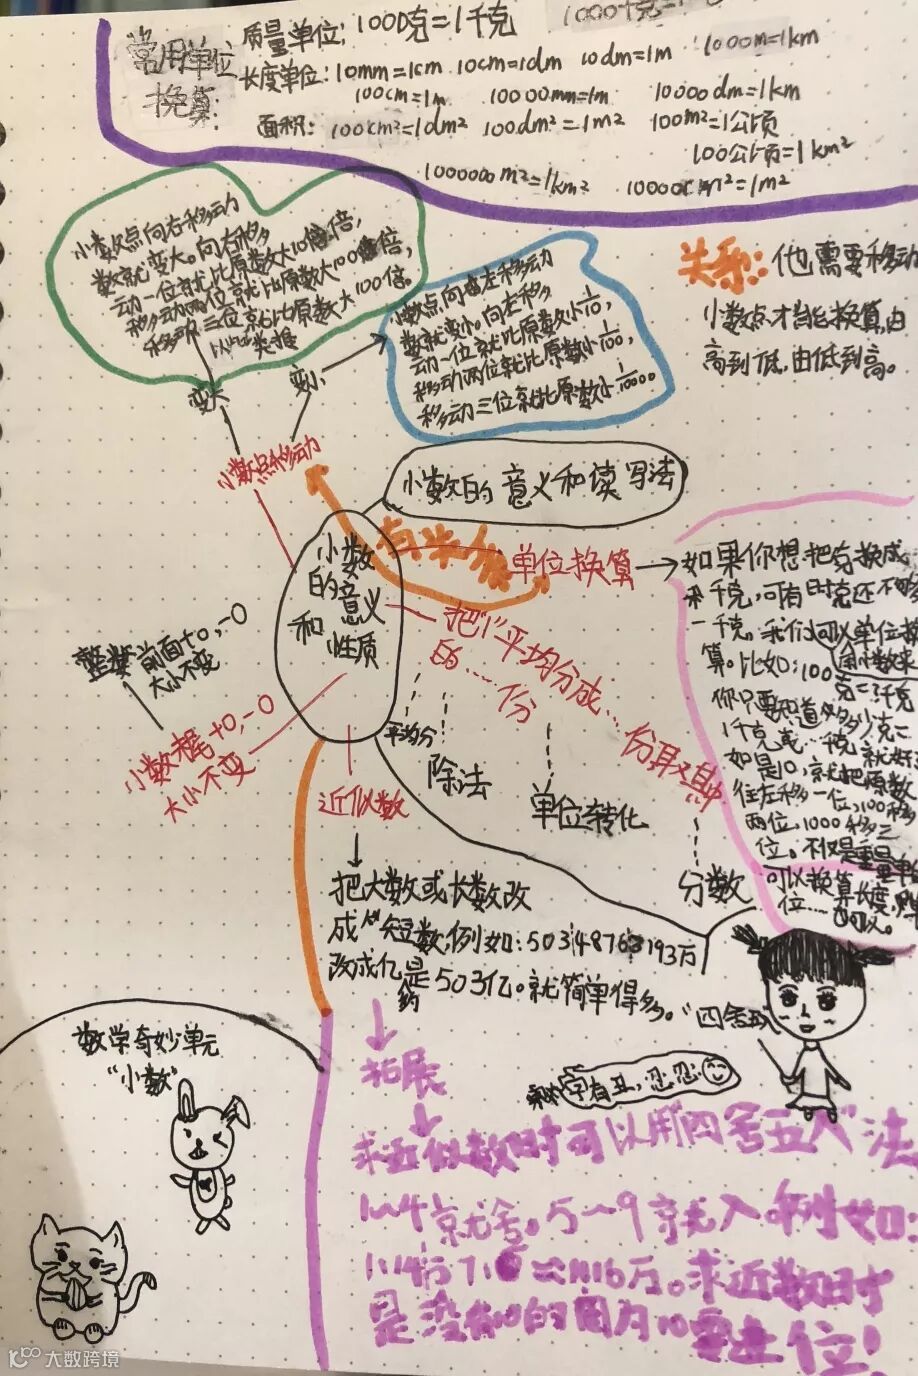 常用单位
换算:
质量单位:1000克=1千克 1000千克=
长度单位:10mm=1cm 10cm=1dm 10dm=1m 1000m=1km
100cm=1m 10000mm=1m 10000dm=1km
面积:100cm²=1dm² 100dm²=1m² 100m²=1公顷
100公顷=1km²
1000000m²=1km² 10000cm²=1m²
小数点向右移动
数就变大。向右移
动一位就比原数大10倍,
移动两位就比原数大100倍,
移动三位就比原数大100倍。
以此类推
小数点向左移动
数就变小。向左移
动一位就比原数小1/10,
移动两位就比原数小1/100,
移动三位就比原数小1/10000。
关系:他需要移动
小数点才能换算,由
高到低,由低到高。
变大
变小
小数点移动
小数的意义和读写法
小数
的意义
和性质
有关系
单位换算
如果你想把克换成
千克,可有时克还不够
一千克。我们可以单位换
算。比如:100克=?千克
用小数来
你只要知道多少克=
1千克或…千克就好
如是10,就把原数
往左移一位,100移
两位,1000移三
位。不仅是重量单
可以换算长度,
位……也可以。
整数前面+0,-0
大小不变
小数末尾+0,-0
大小不变
把"1"平均分成…
的…份
份取其中
平均分
除法
单位转化
分数
近似数
把大数或长数改
成"短数,例如:50348763193万
改成亿是约503亿。就简单得多。"四舍五
拓展
字有丑,忍忍
求近似数时可以用四舍五入法
1~4就舍。5~9就入。例如:
是没有10的因为10要进位!
数学奇妙单元
"小数"
大数跨境